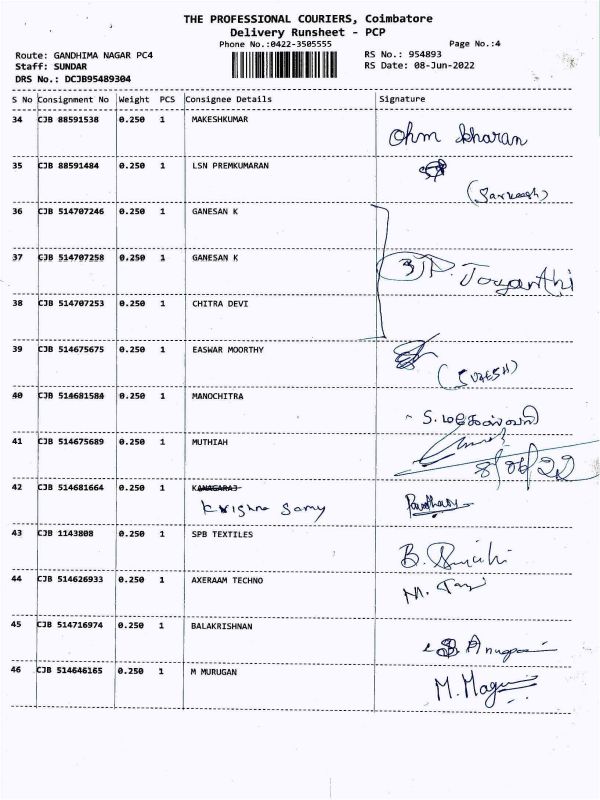 THE PROFESSIONAL COURIERS, Coimbatore
Delivery Runsheet - PCP
Phone No.:0422-3505555
Page No.:4
Route: GANDHIMA NAGAR PC4
RS No.: 954893
Staff: SUNDAR
RS Date: 08-Jun-2022
DRS No.: DCJB95489304
S No Consignment No Weight PCS Consignee Details Signature
34 CJB 88591538 0.250 1 MAKESHKUMAR
Ohm kharan
35 CJB 88591484 0.250 1 LSN PREMKUMARAN
36 CJB 514707246 0.250 1 GANESAN K
37 CJB 514707258 0.250 1 GANESAN K
38 CJB 514707253 0.250 1 CHITRA DEVI
39 CJB 514675675 0.250 1 EASWAR MOORTHY
(SURESH)
40 CJB 514681584 0.250 1 MANOCHITRA
41 CJB 514675689 0.250 1 MUTHIAH
8/06/22
42 CJB 514681664 0.250 1 KANAGARAJ
Krishna Samy
43 CJB 1143808 0.250 1 SPB TEXTILES
44 CJB 514626933 0.250 1 AXERAAM TECHNO
45 CJB 514716974 0.250 1 BALAKRISHNAN
46 CJB 514646165 0.250 1 M MURUGAN